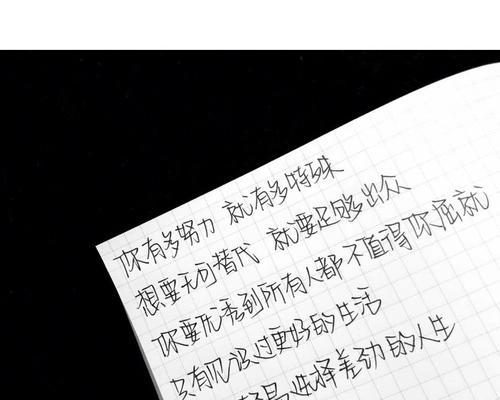 你有多努力 就有多特殊
想要无可替代 就要足够出众
你要优秀到所有人都不值得你屈就
只有见过更好的生活
轻易选择差劲的人生